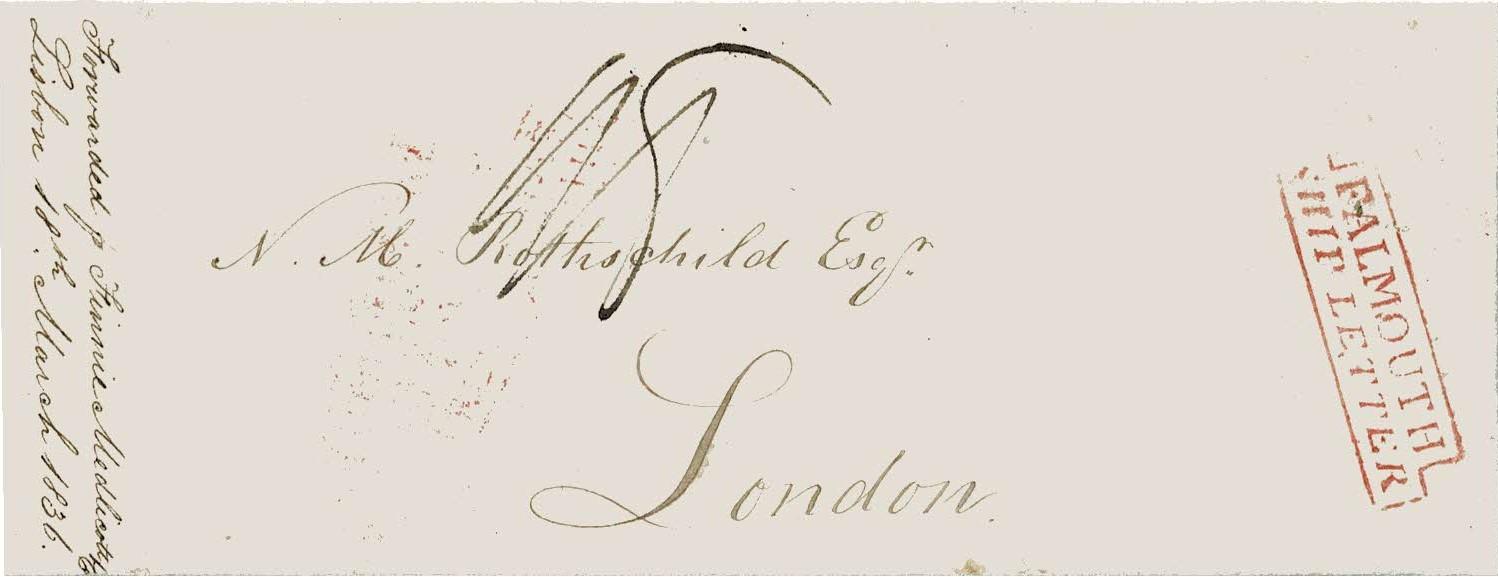 Forwarded p Finnie Medlicott
Lisbon 18th. March 1836.
N. M. Rothschild Esqr.
London.
FALMOUTH
SHIP LETTER